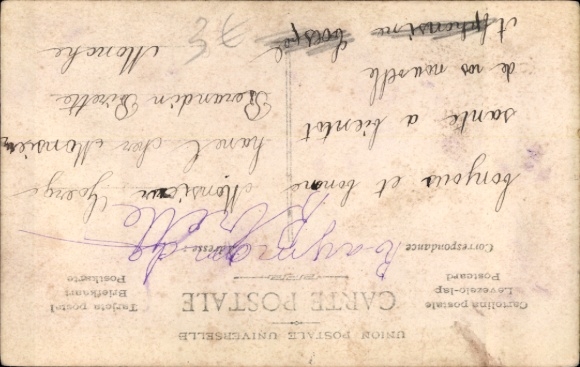 UNION POSTALE UNIVERSELLE
CARTE POSTALE
Cartolina postale
Levelezo-lap
Postcard
Tarjeta postal
Briefkaart
Postkarte
Correspondance
Adresse :
Raymonde
bonjour et bonne
sante a bientot
de vos nouvelle
Monsieur Georg
hanel cher Monsieur
Pirette
Manche